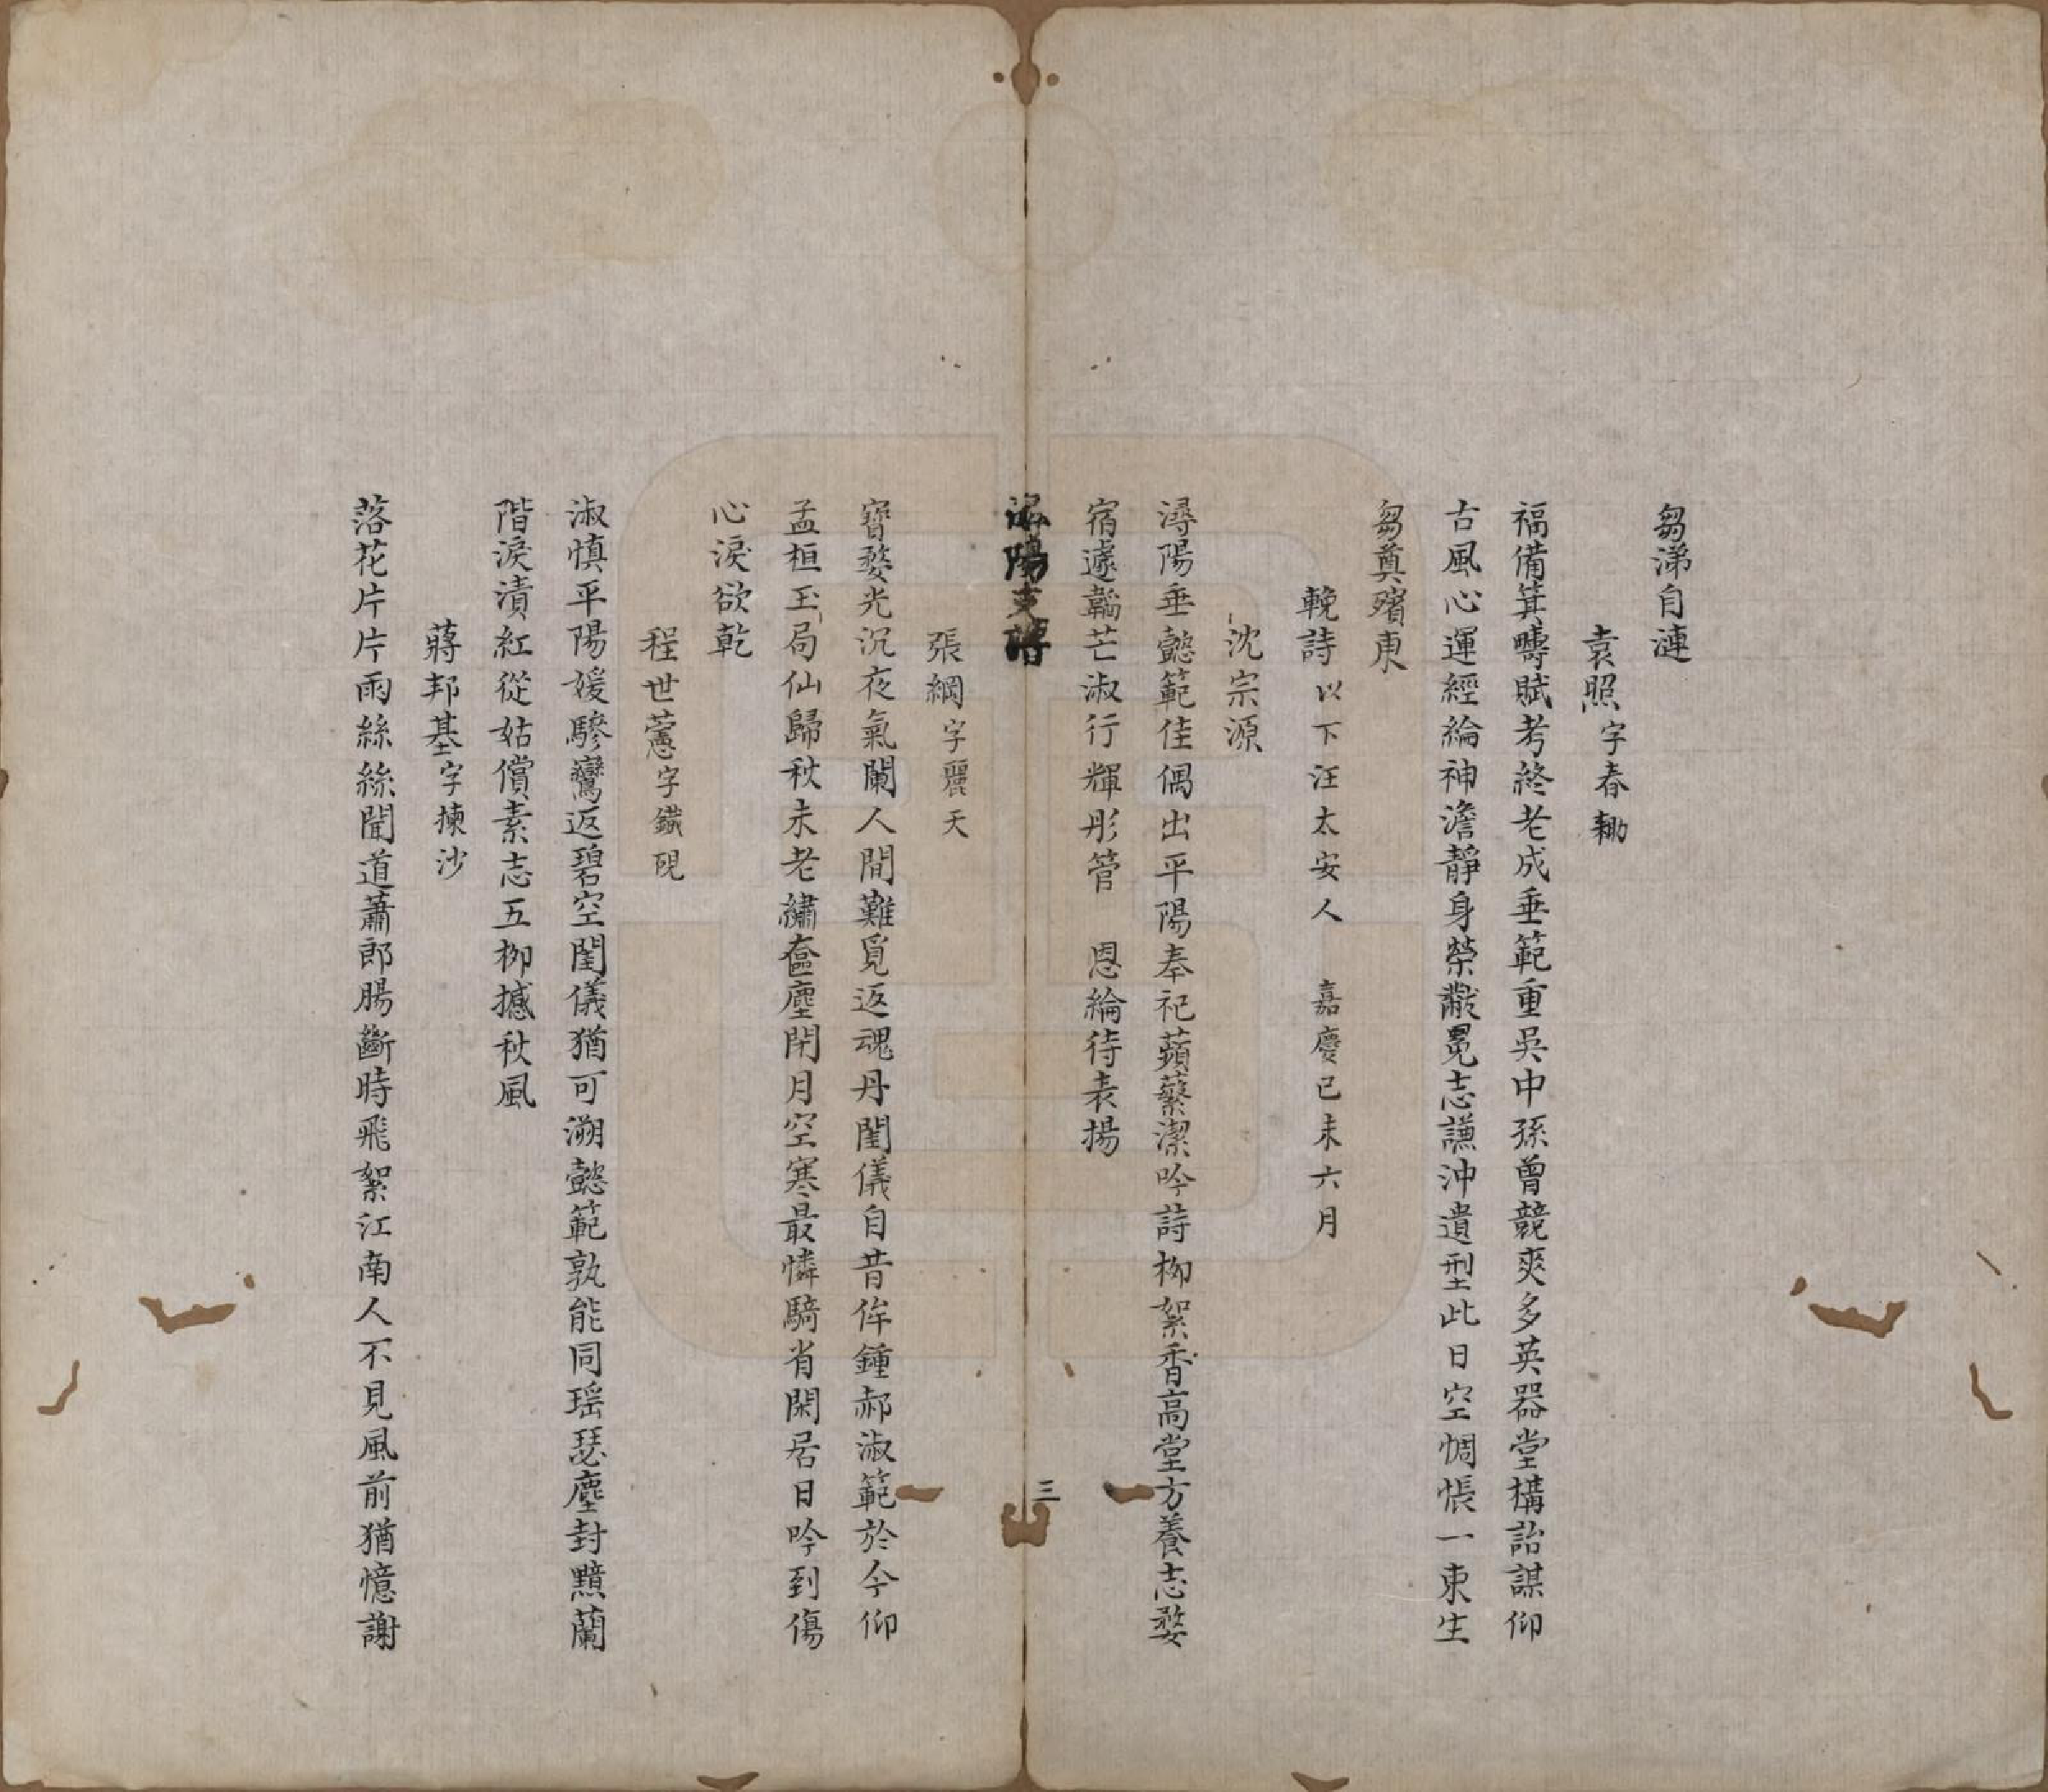 芻涕自漣
袁照字春耡
福備箕疇賦考終老成垂範重吳中孫曾競爽多英器堂構詒謀仰
古風心運經綸神澹靜身榮黻冕志謙沖遺型此日空惆悵一束生
芻奠殯東
輓詩以下汪太安人 嘉慶己未六月
沈宗源
潯陽垂懿範佳偶出平陽奉祀蘋蘩潔吟詩柳絮香高堂方養志婺
宿遽韜芒淑行輝彤管 恩綸待表揚
陽支譜
三
張綱字麗天
寶婺光沉夜氣闌人間難覓返魂丹閨儀自昔侔鍾郝淑範於今仰
孟桓玉局仙歸秋未老繡奩塵閉月空寒最憐騎省閑居日吟到傷
心淚欲乾
程世藼字鐵硯
淑慎平陽媛驂鸞返碧空閨儀猶可溯懿範孰能同瑶瑟塵封黯蘭
階淚漬紅從姑償素志五柳撼秋風
蔣邦基字揀沙
落花片片雨絲絲聞道蕭郎腸斷時飛絮江南人不見風前猶憶謝